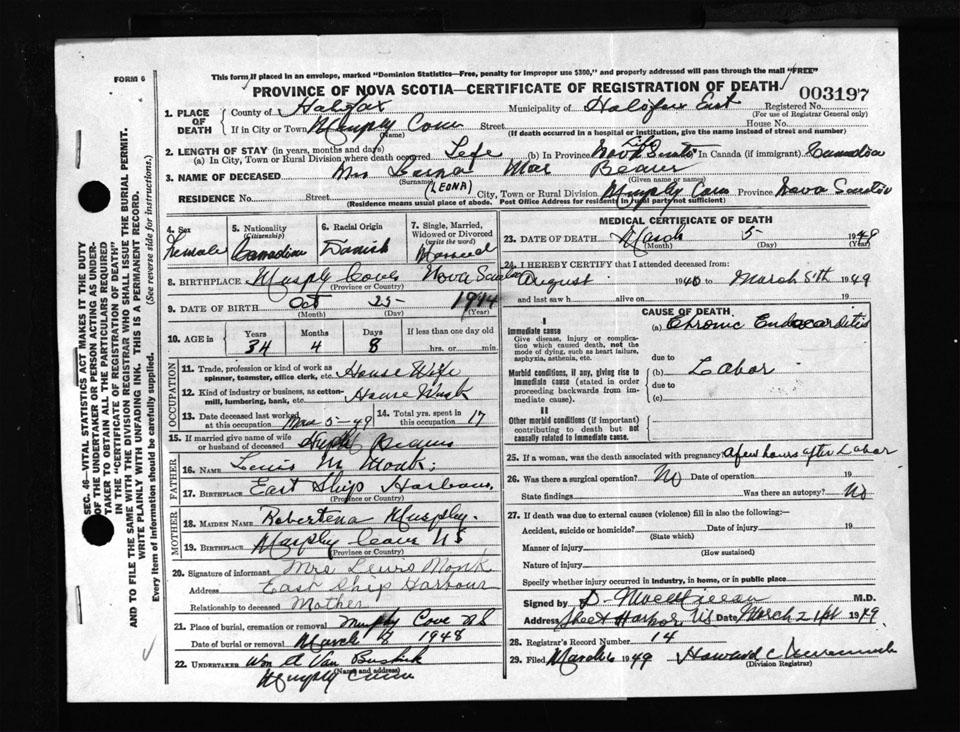 FORM 6
This form if placed in an envelope, marked "Dominion Statistics—Free, penalty for improper use $300," and properly addressed will pass through the mail "FREE"
PROVINCE OF NOVA SCOTIA—CERTIFICATE OF REGISTRATION OF DEATH
003197
1. PLACE OF DEATH
County of Halifax Municipality of Halifax East Registered No.
(For use of Registrar General only)
If in City or Town Murphy Cove Street House No.
(Name) (If death occurred in a hospital or institution, give the name instead of street and number)
2. LENGTH OF STAY (in years, months and days)
(a) In City, Town or Rural Division where death occurred Life (b) In Province Life Nova Scotia In Canada (if immigrant) Canadian
3. NAME OF DECEASED Mrs Mae
(Surname) (Given name or names)
(LEONA)
RESIDENCE No. Street City, Town or Rural Division Murphy Cove Province Nova Scotia
(Residence means usual place of abode. Post Office Address for residents in rural parts not sufficient)
4. Sex
Female
5. Nationality
(Citizenship)
Canadian
6. Racial Origin
7. Single, Married, Widowed or Divorced
(write the word)
Married
8. BIRTHPLACE Murphy Cove Nova Scotia
(Province or Country)
9. DATE OF BIRTH Oct 25 1914
(Month) (Day) (Year)
10. AGE Years Months Days If less than one day old
34 4 8 hrs. or min.
OCCUPATION
11. Trade, profession or kind of work as spinner, teamster, office clerk, etc. House Wife
12. Kind of industry or business, as cotton-mill, lumbering, bank, etc. House Work
13. Date deceased last worked at this occupation Mar 5-49
14. Total yrs. spent in this occupation 17
15. If married give name of wife or husband of deceased
FATHER
16. NAME Lewis M Monk
17. BIRTHPLACE East Ship Harbour
(Province or Country)
MOTHER
18. MAIDEN NAME Robertena Murphy
19. BIRTHPLACE Murphy Cove NS
(Province or Country)
20. Signature of informant Mrs Lewis Monk
Address East Ship Harbour
Relationship to deceased Mother
21. Place of burial, cremation or removal Murphy Cove NS
Date of burial or removal March 8 1948
22. UNDERTAKER Wm A Van Buskirk
(Name and address)
Murphy Cove
MEDICAL CERTIFICATE OF DEATH
23. DATE OF DEATH March 5 1949
(Month) (Day) (Year)
24. I HEREBY CERTIFY that I attended deceased from:
August 1940 to March 5th 1949
and last saw h alive on 19
CAUSE OF DEATH
I
Immediate cause
Give disease, injury or complication which caused death, not the mode of dying, such as heart failure, asphyxia, asthenia, etc.
(a) Chronic Endocarditis
due to
Morbid conditions, if any, giving rise to immediate cause (stated in order proceeding backwards from immediate cause).
(b) Labor
due to
(c)
II
Other morbid conditions (if important) contributing to death but not causally related to immediate cause.
25. If a woman, was the death associated with pregnancy? A few hours after Labor
26. Was there a surgical operation? No Date of operation 19
State findings Was there an autopsy? No
27. If death was due to external causes (violence) fill in also the following:—
Accident, suicide or homicide? Date of injury 19
(State which)
Manner of injury
(How sustained)
Nature of injury
Specify whether injury occurred in industry, in home, or in public place
Signed by M.D.
Address Sheet Harbor, NS Date March 21st 1949
28. Registrar's Record Number 14
29. Filed March 6 1949 Howard C
(Division Registrar)
SEC. 48—VITAL STATISTICS ACT MAKES IT THE DUTY
OF THE UNDERTAKER OR PERSON ACTING AS UNDER-
TAKER TO OBTAIN ALL THE PARTICULARS REQUIRED
IN THE "CERTIFICATE OF REGISTRATION OF DEATH"
AND TO FILE THE SAME WITH THE DIVISION REGISTRAR WHO SHALL ISSUE THE BURIAL PERMIT.
WRITE PLAINLY WITH UNFADING INK. THIS IS A PERMANENT RECORD.
Every item of information should be carefully supplied. (See reverse side for instructions.)